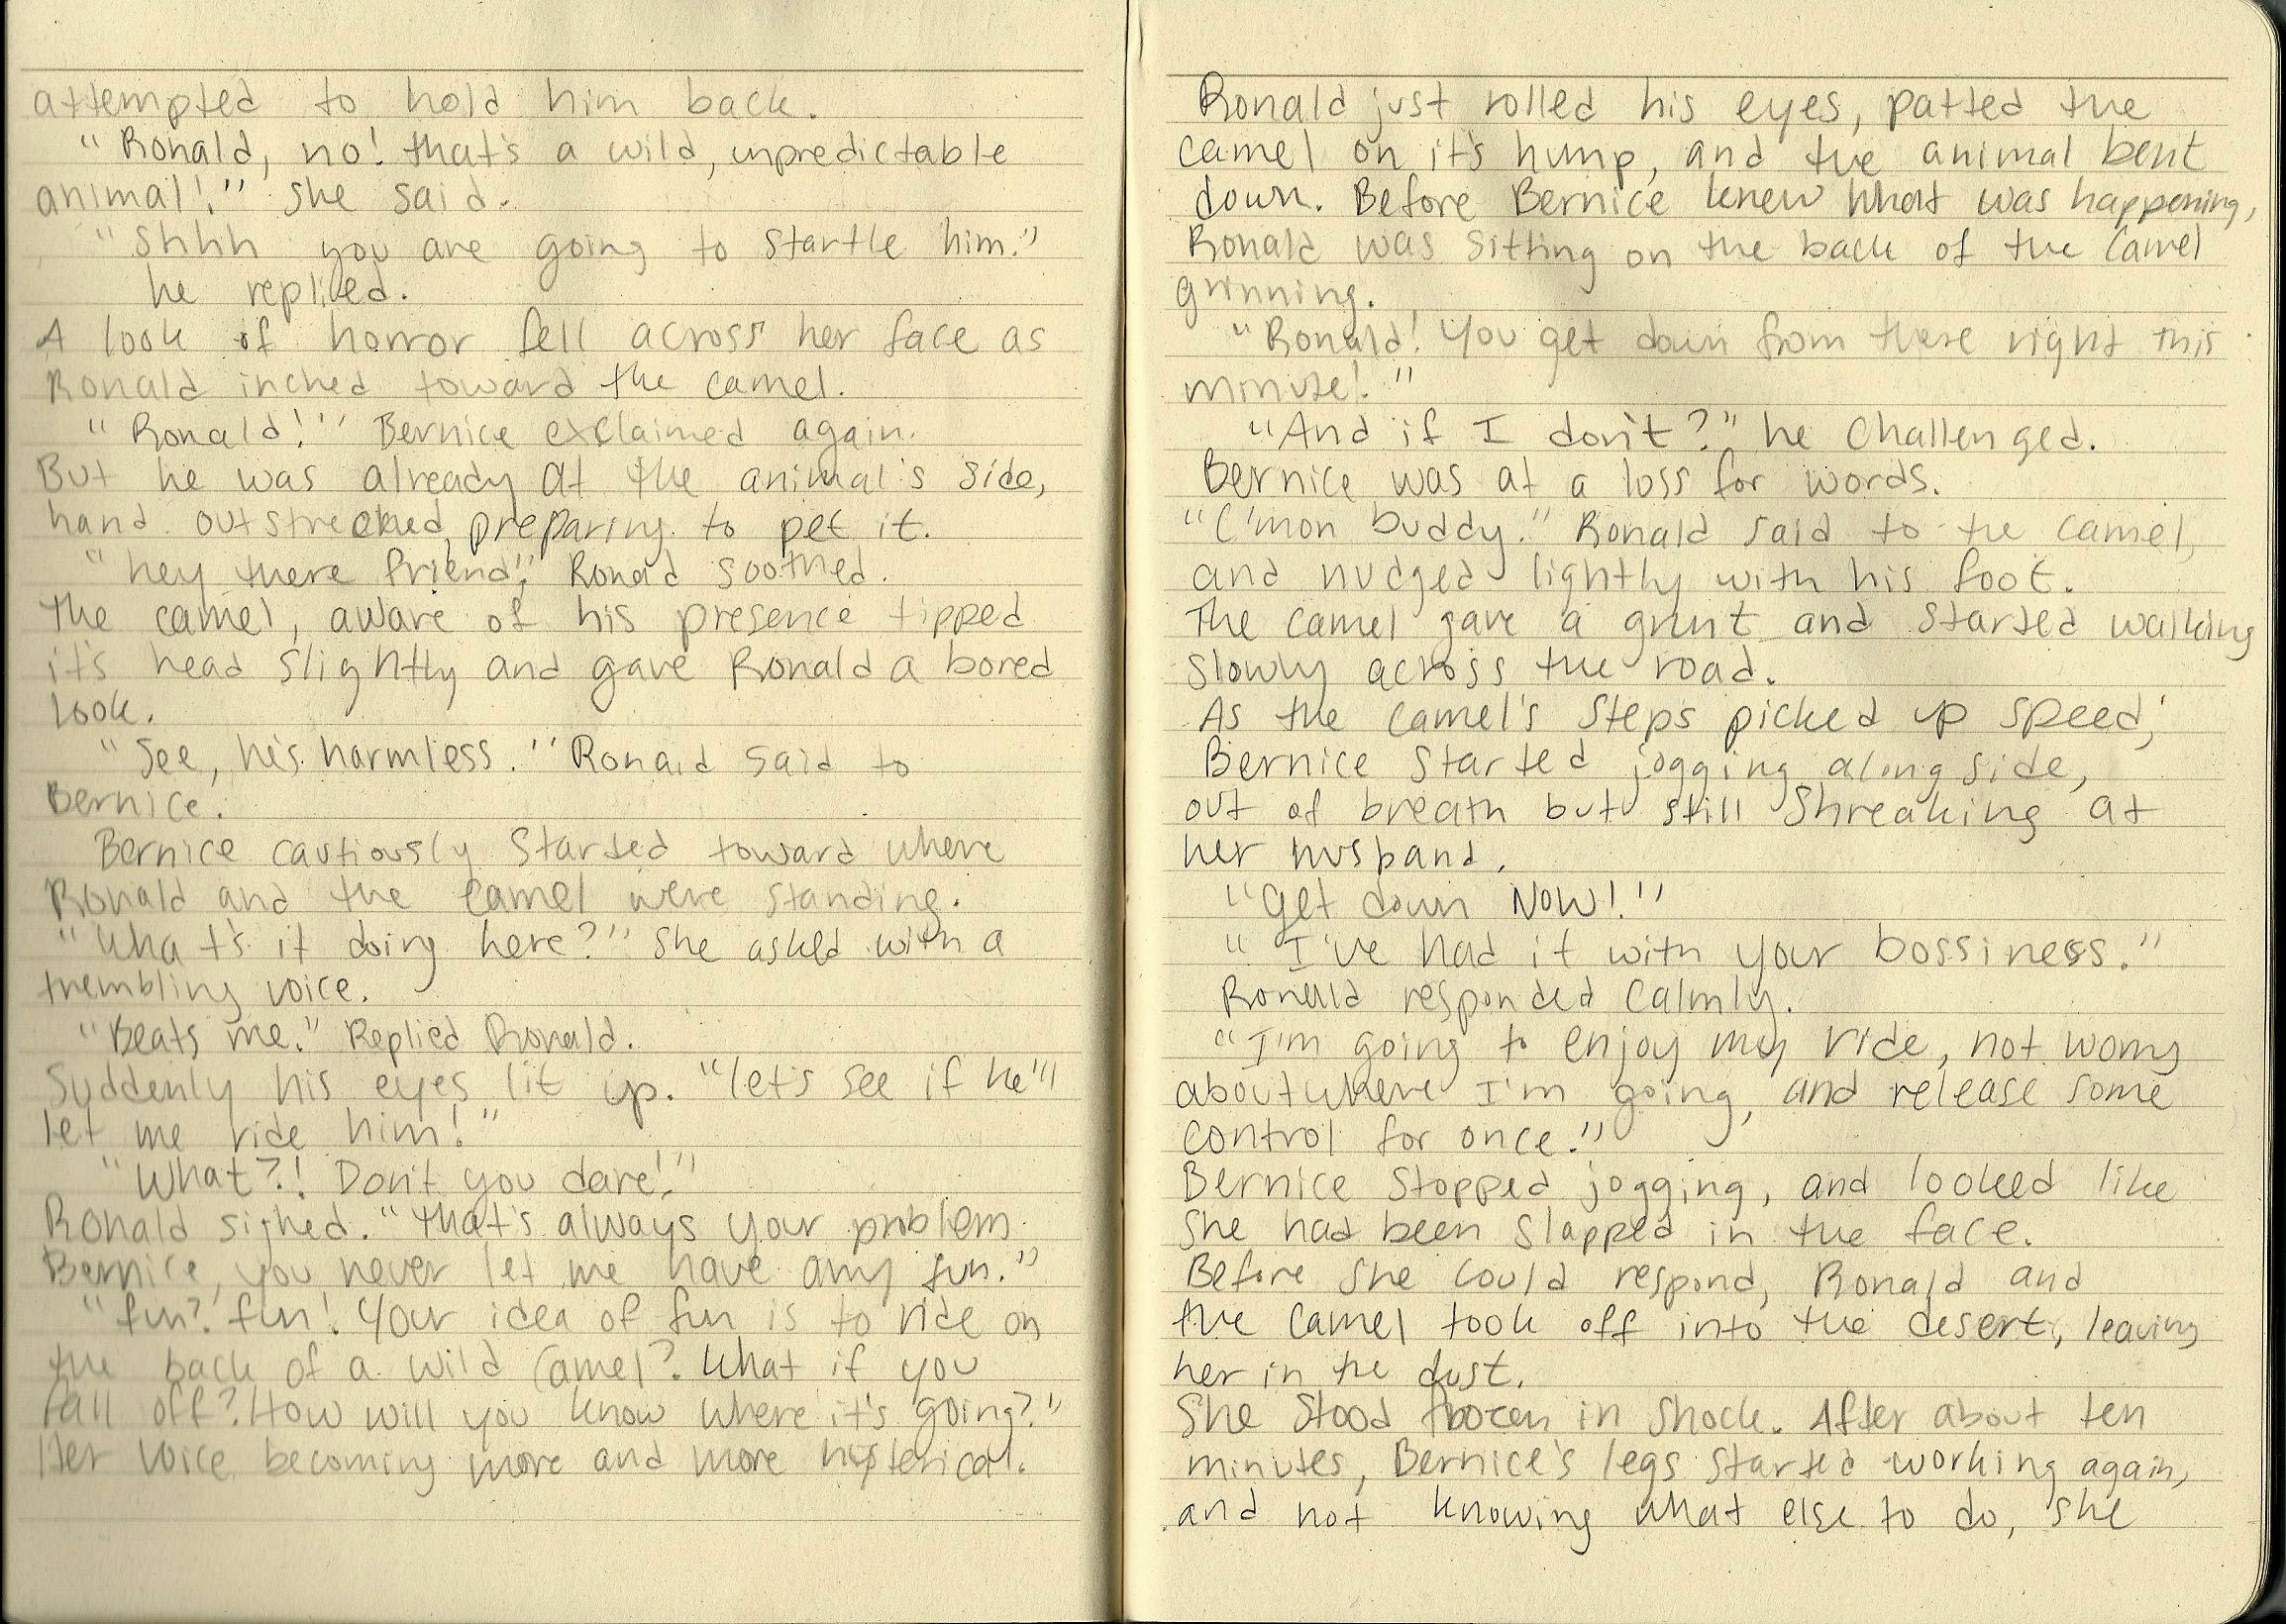 attempted to hold him back.
"Ronald, no! that's a wild, unpredictable
animal!" she said.
"Shhh you are going to startle him."
he replied.
A look of horror fell across her face as
Ronald inched toward the camel.
"Ronald!" Bernice exclaimed again.
But he was already at the animal's side,
hand outstreched, preparing to pet it.
"hey there friend," Ronald soothed.
the camel, aware of his presence tipped
it's head slightly and gave Ronald a bored
look.
"See, he's harmless." Ronald said to
Bernice.
Bernice cautiously started toward where
Ronald and the camel were standing.
"What's it doing here?" She asked with a
trembling voice.
"Beats me." Replied Ronald.
Suddenly his eyes lit up. "let's see if he'll
let me ride him!"
"What?! Don't you dare!"
Ronald sighed. "that's always your problem
Bernice, you never let me have any fun."
"fun? fun! Your idea of fun is to ride on
the back of a wild Camel? What if you
fall off? How will you know where it's going?"
Her voice becoming more and more hysterical.
Ronald just rolled his eyes, patted the
camel on it's hump, and the animal bent
down. Before Bernice knew what was happening,
Ronald was sitting on the back of the camel
grinning.
"Ronald! You get down from there right this
minute!"
"And if I don't?" he challenged.
Bernice was at a loss for words.
"C'mon buddy." Ronald said to the camel,
and nudged lightly with his foot.
The camel gave a grunt and started walking
slowly across the road.
As the camel's steps picked up speed,
Bernice started jogging along side,
out of breath but still Shreaking at
her husband.
"Get down NOW!"
"I've had it with your bossiness."
Ronald responded calmly.
"I'm going to enjoy my ride, not worry
about where I'm going, and release some
control for once."
Bernice stopped jogging, and looked like
she had been slapped in the face.
Before she could respond, Ronald and
the camel took off into the desert, leaving
her in the dust.
She stood frozen in shock. After about ten
minutes, Bernice's legs started working again,
and not knowing what else to do, she